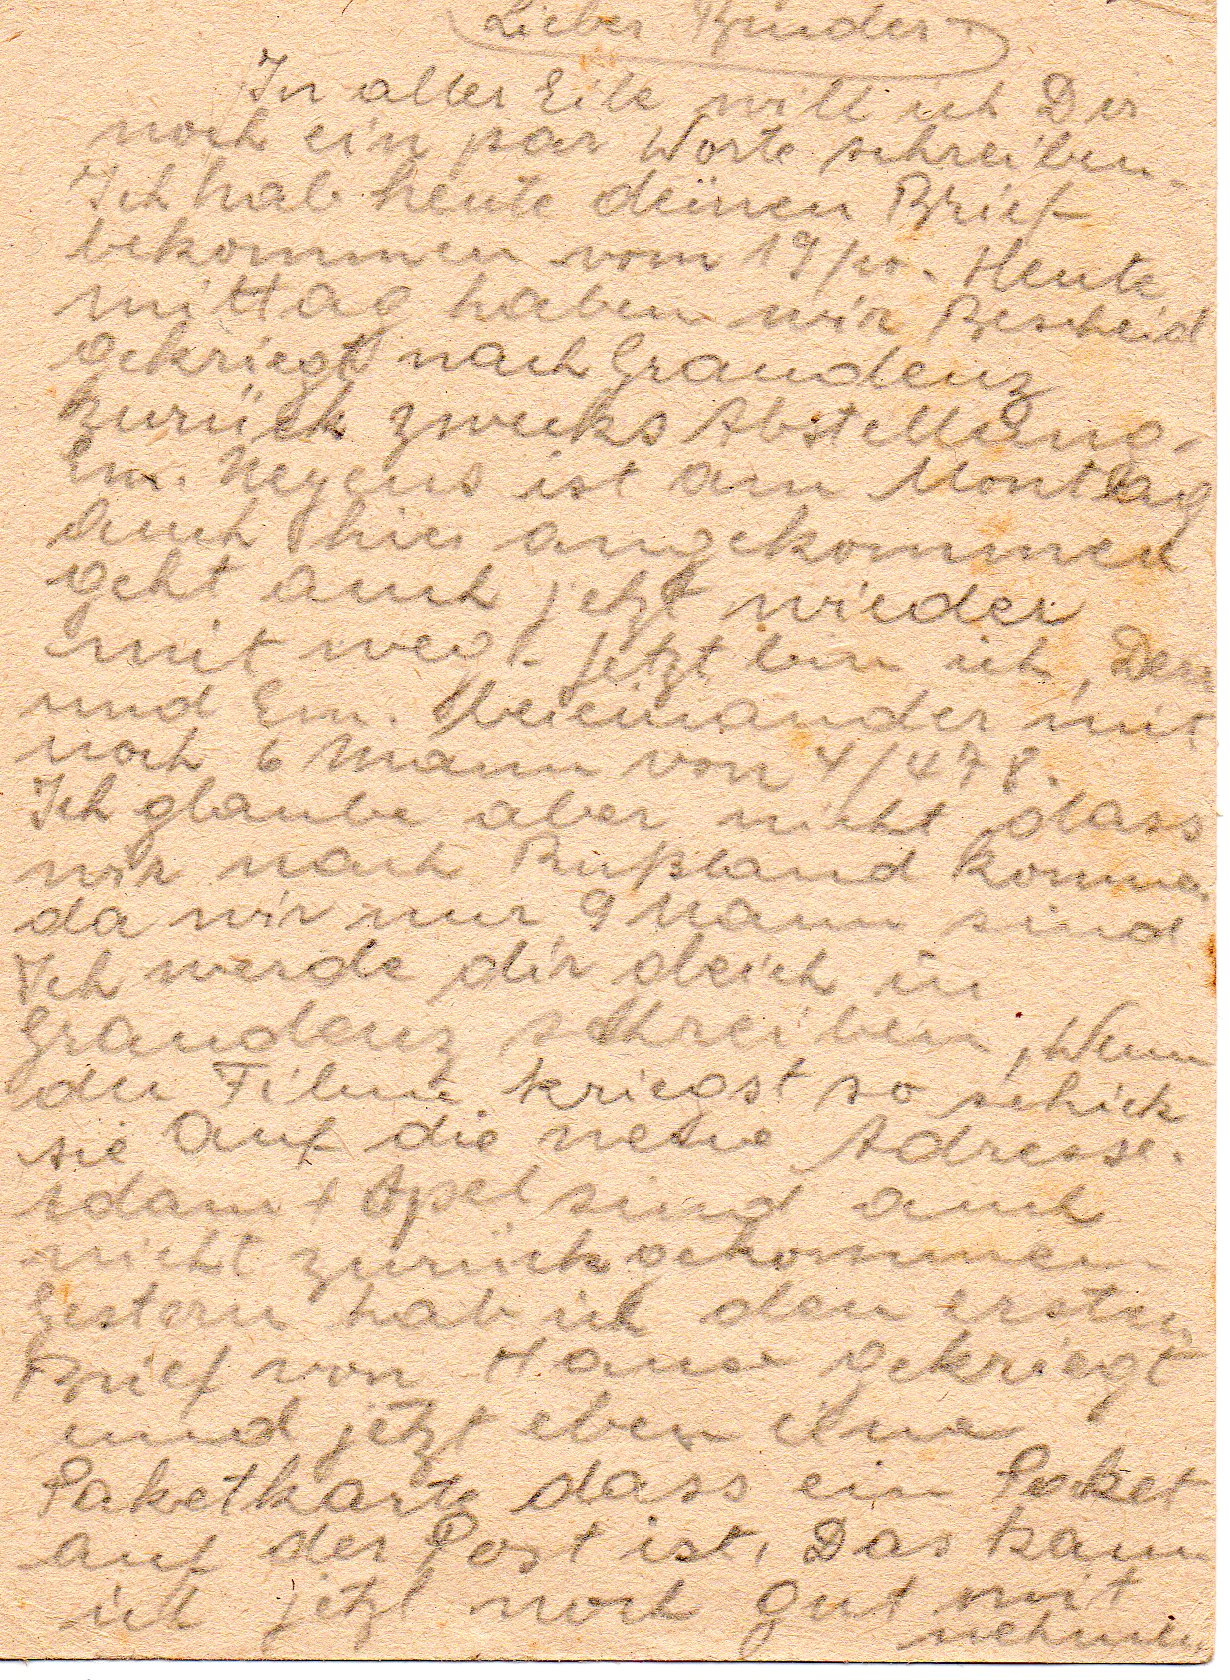 Lieber Bruder.
In aller Eile will ich Der
noch ein par Worte schreiben.
Ich hab heute deinen Brief
bekommen vom 19/10. Heute
mittag haben wir Bescheid
gekriegt nach Graudenz
zurück zwecks Abstellung.
Em. Negens ist am Montag
auch hier angekommen
geht auch jetzt wieder
mit weg. Jetzt bin ich,
und Em. beieinander mit
noch 6 Mann von 4/478.
Ich glaube aber nicht dass
wir nach Rußland komme
da wir nur 9 Mann sind
Ich werde dir gleich in
Graudenz schreiben, Wenn
du Filme kriegst so schick
sie Auf die neue Adresse.
Adam + Apel sind auch
nicht zurückgekommen
Gestern hab ich den ersten
Brief von Hause gekriegt
und jetzt eben eine
Paketkarte dass ein Paket
auf der Post ist. Das kann
ich jetzt noch gut mit
nehmen